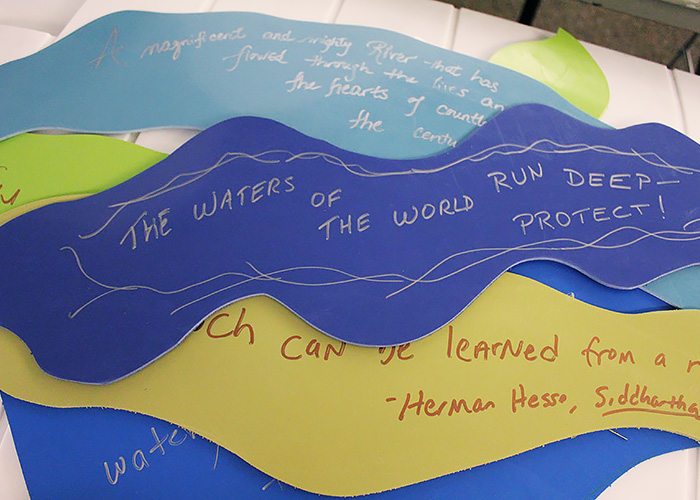 A magnificent and mighty River that has
flowed through the lives an
the hearts of countl
the centu
THE WATERS OF
THE WORLD RUN DEEP—
PROTECT!
ch can be learned from a r
-Herman Hesse, Siddhartha
water